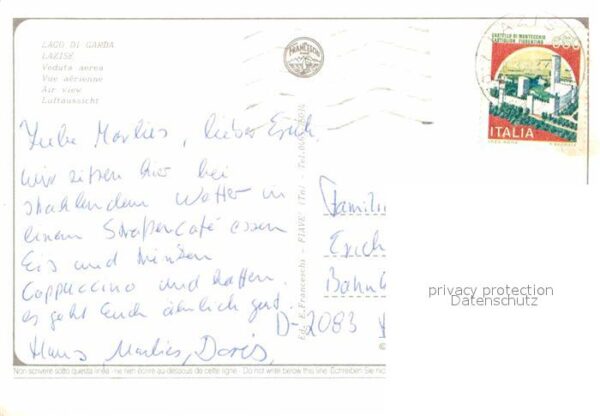 LAGO DI GARDA
LAZISE
Veduta aerea
Vue aérienne
Air view
Luftaussicht
FRANCESCHI
CASTELLO DI MONTECCHIO
CASTIGLION FIORENTINO
ITALIA
Liebe Marlies, lieber Erich.
wir sitzen hier bei
strahlendem Wetter in
einem Straßencafé essen
Eis und trinken
Cappuccino und hoffen
es geht Euch ähnlich gut.
Hans, Marlies, Doris,
Ed. E. Franceschi - PIAVE (TN) - Tel.
Famili
Erich
Bahnh
D-2083
privacy protection
Datenschutz
Non scrivere sotto questa linea - ne rien écrire au dessous de cette ligne - Do not write below this line. Schreiben Sie nic